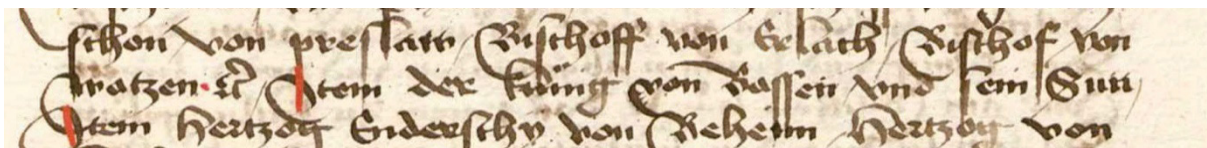 schon von preslaw / Bischoff von Erlach / Bischof von
watzen · ꝛc̄ / Item der kunig von Bassen vnd sein Sun /
Item Hertzog Enderschy von Beheim / Hertzog von